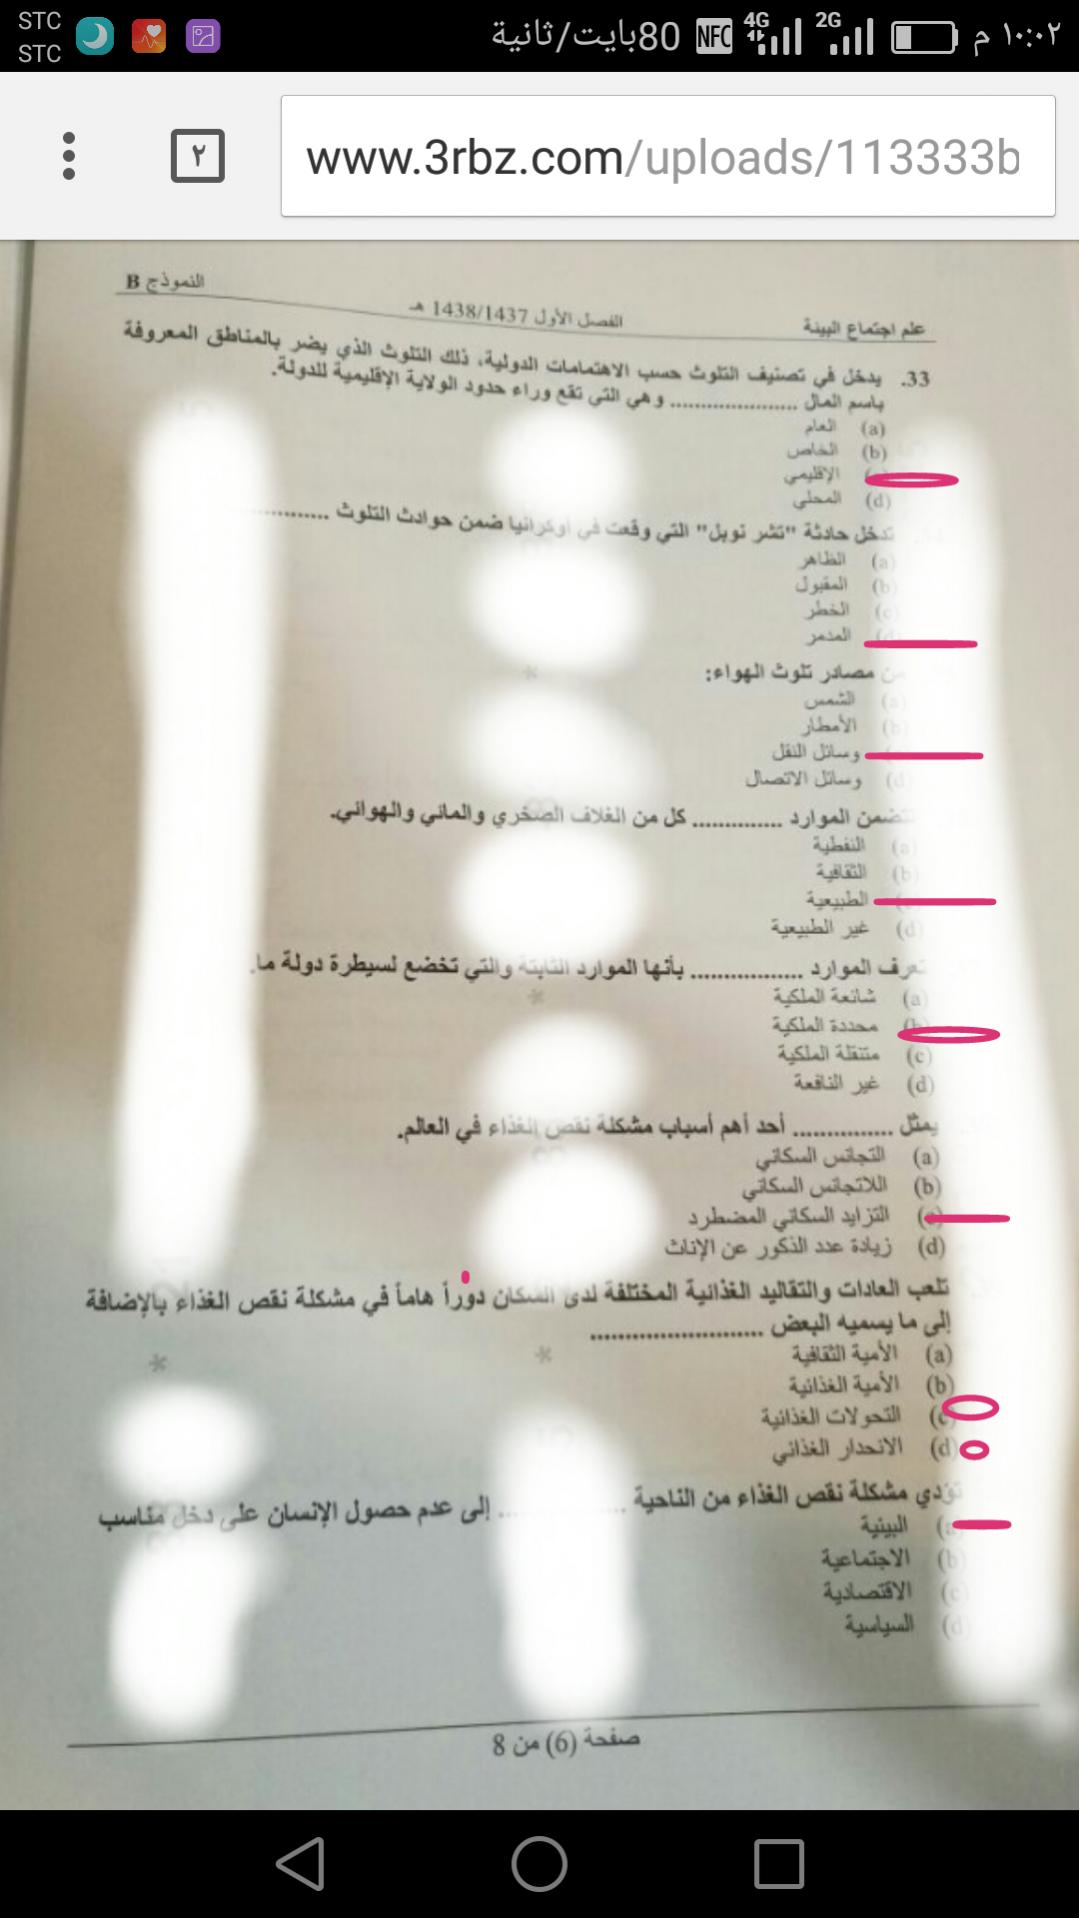 STC
STC
80بايت/ثانية
NFC
4G
2G
١٠:٠٢ م
٢
www.3rbz.com/uploads/113333b
علم اجتماع البيئة
الفصل الأول 1438/1437 هـ
النموذج B
33. يدخل في تصنيف التلوث حسب الاهتمامات الدولية، ذلك التلوث الذي يضر بالمناطق المعروفة
باسم المال .................... وهي التي تقع وراء حدود الولاية الإقليمية للدولة.
(a) العام
(b) الخاص
الإقليمي
(d) المحلي
تدخل حادثة "تشر نوبل" التي وقعت في أوكرانيا ضمن حوادث التلوث ...............
(a) الظاهر
(b) المقبول
(c) الخطر
(d) المدمر
من مصادر تلوث الهواء:
(a) الشمس
(b) الأمطار
وسائل النقل
(d) وسائل الاتصال
تتضمن الموارد .............. كل من الغلاف الصخري والمائي والهوائي.
(a) النفطية
(b) الثقافية
الطبيعية
(d) غير الطبيعية
تعرف الموارد ................. بأنها الموارد الثابتة والتي تخضع لسيطرة دولة ما.
(a) شائعة الملكية
(b) محددة الملكية
(c) متنقلة الملكية
(d) غير النافعة
يمثل ............... أحد أهم أسباب مشكلة نقص الغذاء في العالم.
(a) التجانس السكاني
(b) اللاتجانس السكاني
(c) التزايد السكاني المضطرد
(d) زيادة عدد الذكور عن الإناث
تلعب العادات والتقاليد الغذائية المختلفة لدى السكان دوراً هاماً في مشكلة نقص الغذاء بالإضافة
إلى ما يسميه البعض ..........................
(a) الأمية الثقافية
(b) الأمية الغذائية
(c) التحولات الغذائية
(d) الانحدار الغذائي
تؤدي مشكلة نقص الغذاء من الناحية .................... إلى عدم حصول الإنسان على دخل مناسب
(a) البيئية
(b) الاجتماعية
(c) الاقتصادية
(d) السياسية
صفحة (6) من 8